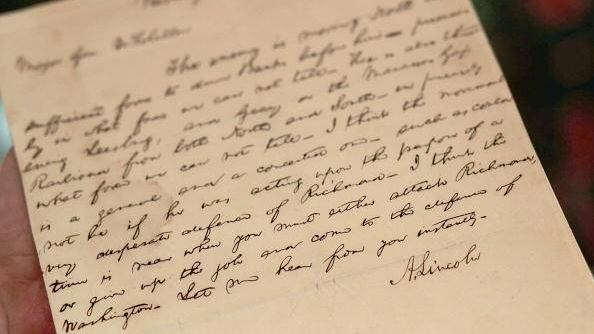 Major Gen. McClellan
The enemy is moving North in
sufficient force to drive Banks before him— precise-
ly in what force we can not tell— He is also threat-
ening Leesburg, and Geary on the Manassas Gap
Railroad from both North and South— in precisely
what force we can not tell— I think the movement
is a general and concerted one— such as could
not be if he was acting upon the purpose of a
very desperate defence of Richmond— I think the
time is near when you must either attack Richmond
or give up the job and come to the defence of
Washington— Let me hear from you instantly—
A. Lincoln